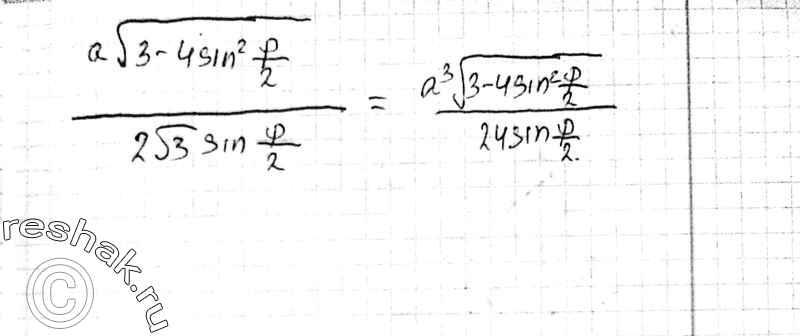 a√(3-4sin² φ/2) / (2√3 sin φ/2) = a³√(3-4sin² φ/2) / (24sin φ/2.)
reshak.ru
©